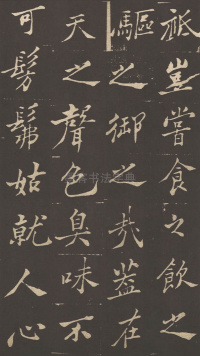 祇豈嘗食之飲之
驅之御之哉蓋在
天之聲色臭味不
可髣髴姑就人心